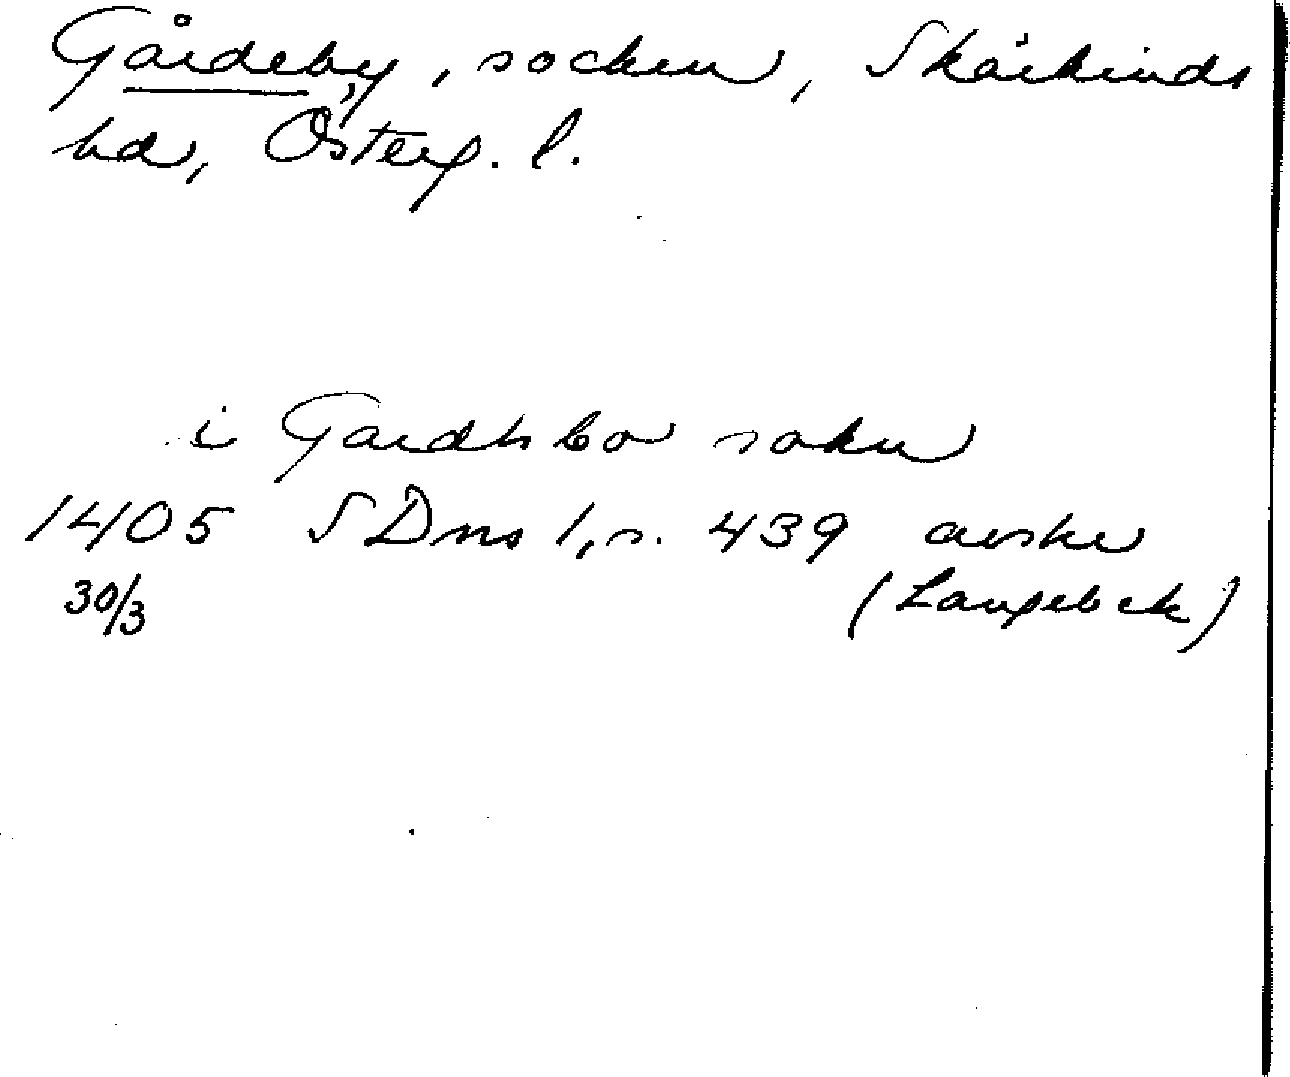 Gårdeby, socken, Skärkinds
hd, Österg. l.
i Gardhsbo sokn
1405 SDns 1, s. 439 avskr
30/3 (Langebek)